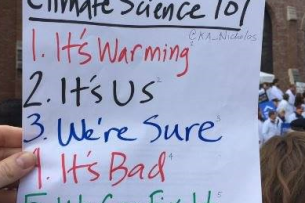 Climate Science 101
@KA_Nicholas
1. It's Warming
2. It's Us
3. We're Sure
4. It's Bad